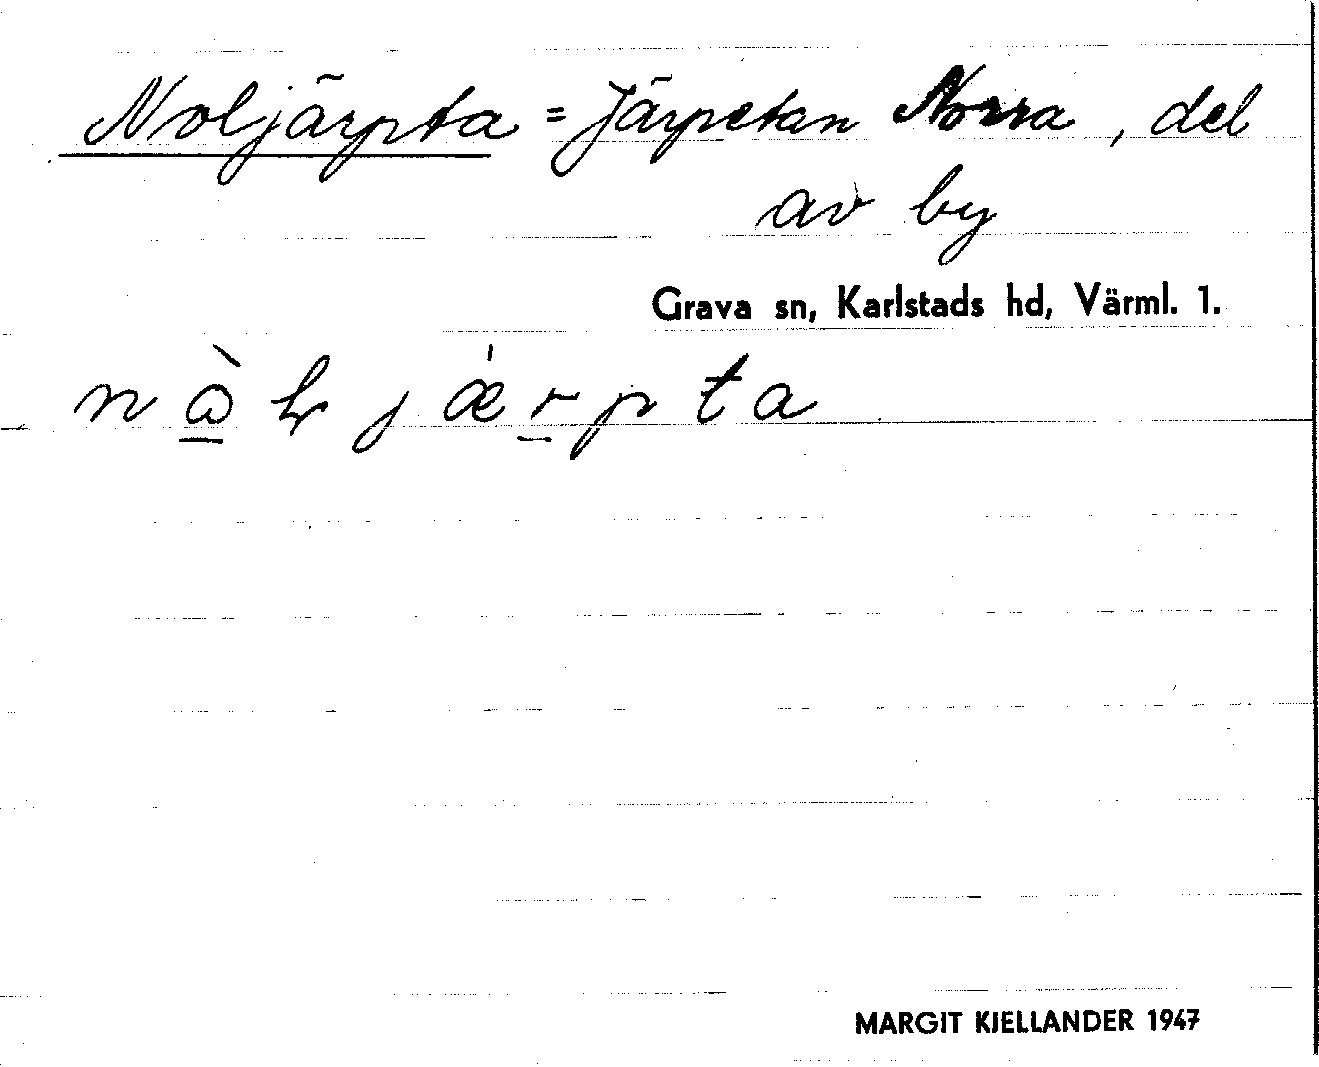 Noljärpta = Järpetan Norra, del
av by
Grava sn, Karlstads hd, Värml. 1.
MARGIT KJELLANDER 1947